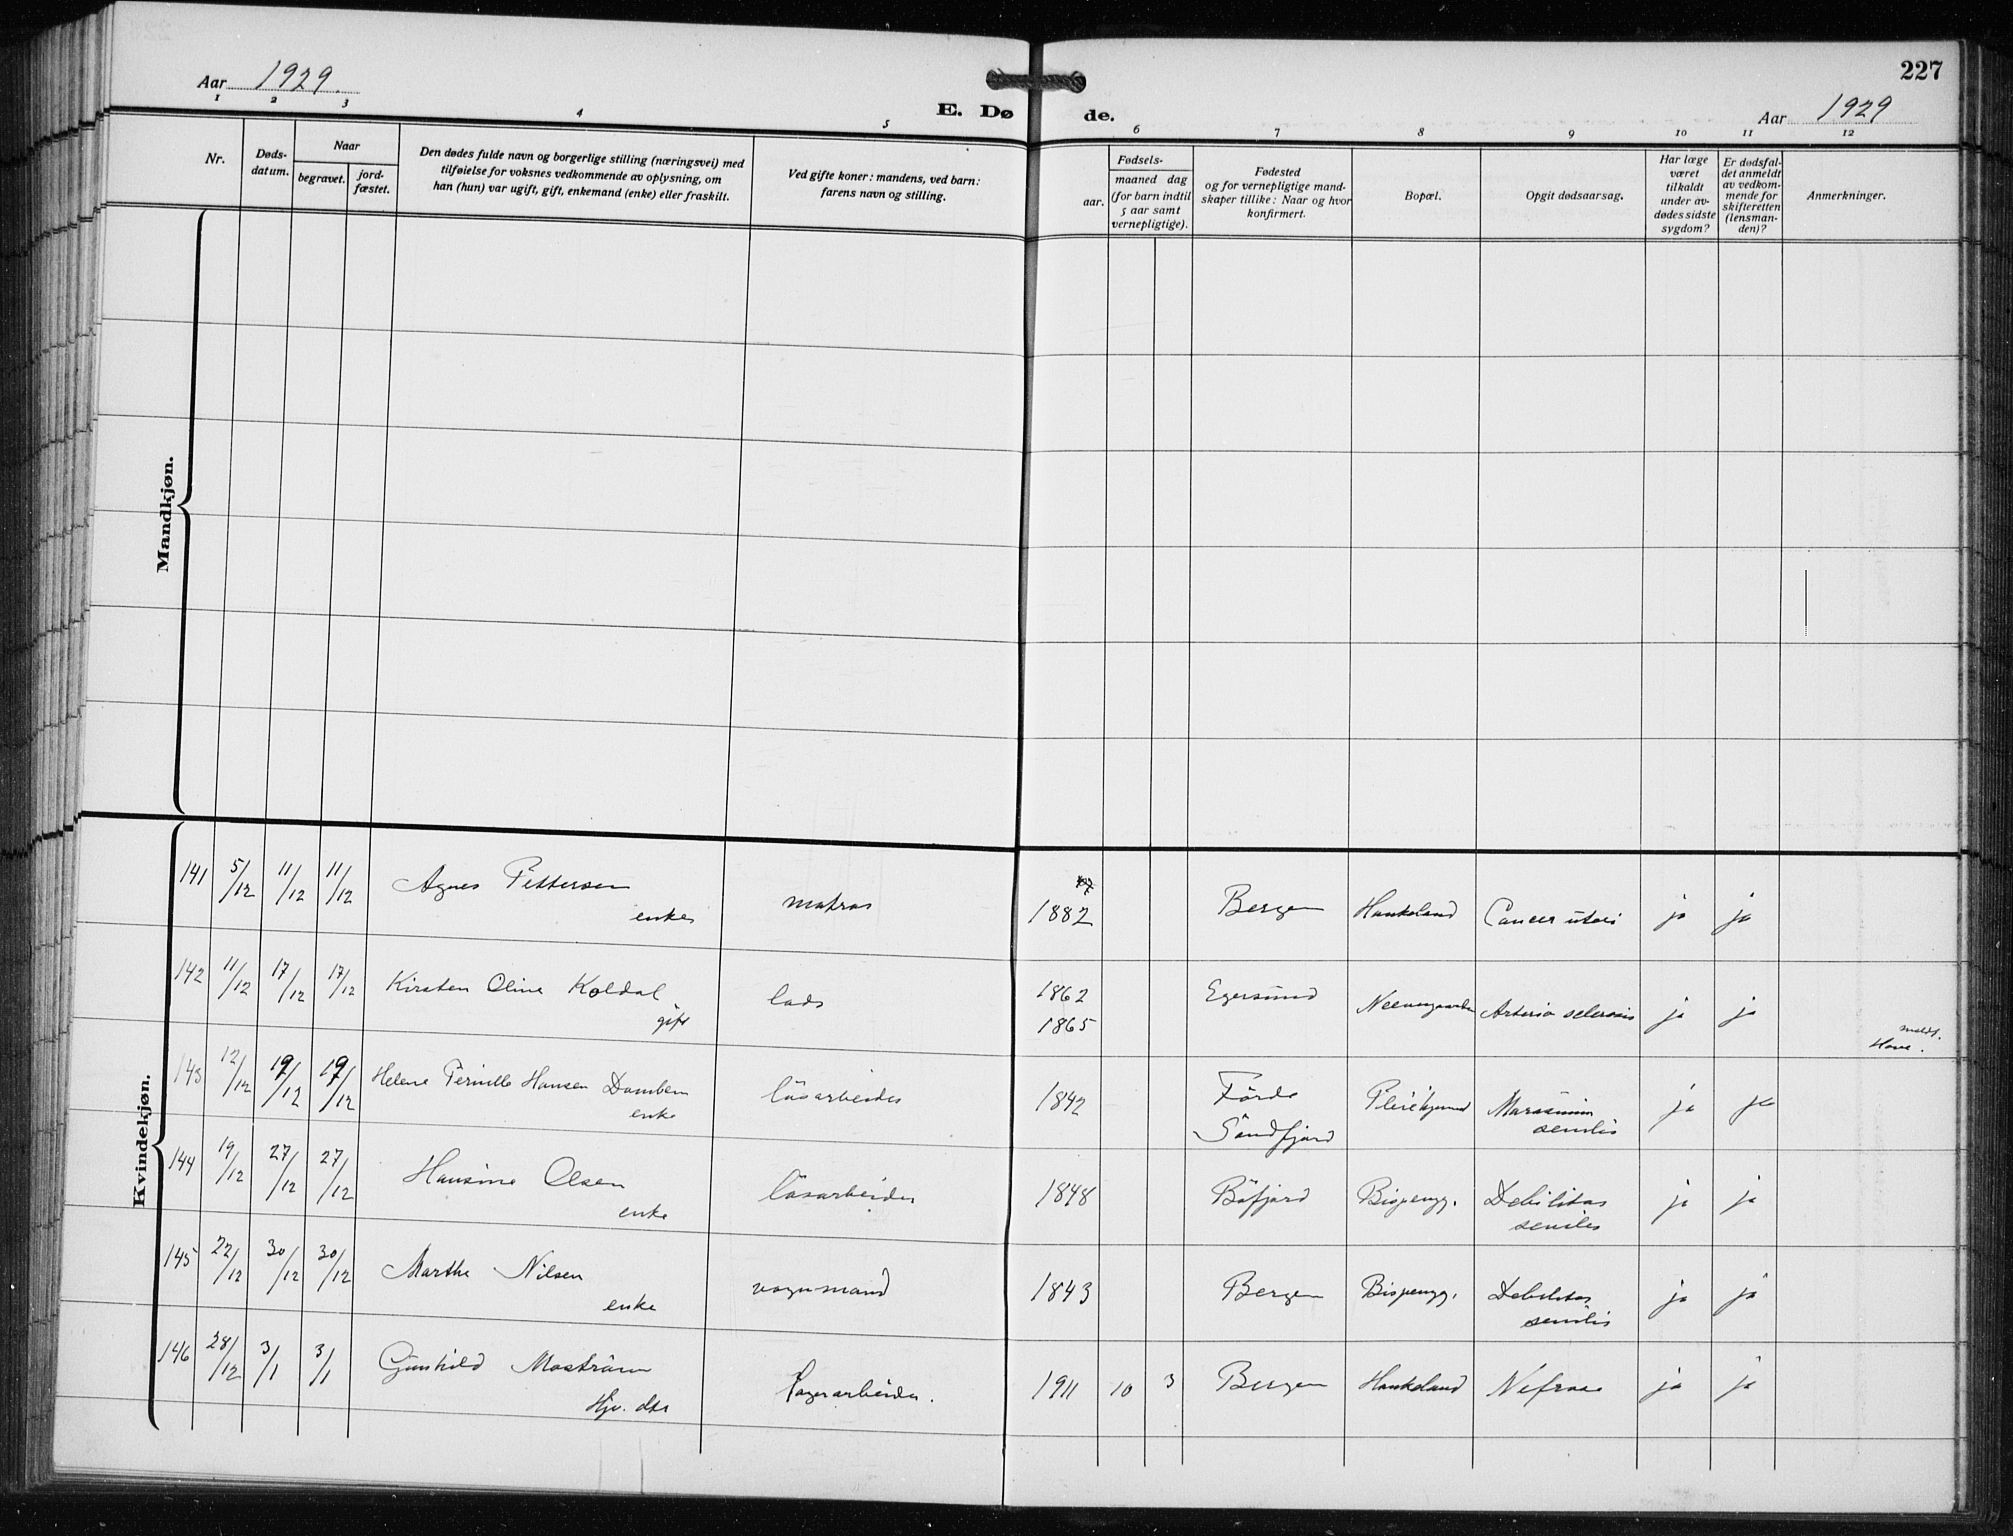 Aar 1929.
E. Døde.
227
Aar 1929
1 2 3 4 5 6 7 8 9 10 11 12
Nr.
Døds-
datum.
Naar
begravet.
jord-
fæstet.
Den dødes fulde navn og borgerlige stilling (næringsvei) med
tilføielse for voksnes vedkommende av oplysning, om
han (hun) var ugift, gift, enkemand (enke) eller fraskilt.
Ved gifte koner: mandens, ved barn:
farens navn og stilling.
aar.
Fødsels-
maaned dag
(for barn indtil
5 aar samt
vernepligtige).
Fødested
og for vernepligtige mand-
skaper tillike: Naar og hvor
konfirmert.
Bopæl.
Opgit dødsaarsag.
Har læge
været
tilkaldt
under av-
dødes sidste
sygdom?
Er dødsfal-
det anmeldt
av vedkom-
mende for
skifteretten
(lensman-
den)?
Anmerkninger.
Mandkjøn.
Kvindekjøn.
141 5/12 11/12 11/12 Agnes Pettersen enke matros 1882 Bergen Haukeland Cancer uteri ja ja
142 11/12 17/12 17/12 Kirsten Oline Koldal gift lods 1862 Egersund Arterio sclerosis ja ja
1865
143 12/12 19/12 19/12 Helene Pernille Hansen enke løsarbeider 1842 Førde Søndfjord Pleiehjemmet senilis ja ja
144 19/12 27/12 27/12 Hansine Olsen enke løsarbeider 1848 Bøfjord Bispengg. Debilitas senilis ja ja
145 22/12 30/12 30/12 Marthe Nilsen enke vognmand 1843 Bergen Bispengg. Debilitas senilis ja ja
146 28/12 3/1 3/1 Gunhild Mostrøm Hjv. dtr lagerarbeider. 1911 10 3 Bergen Haukeland ja ja